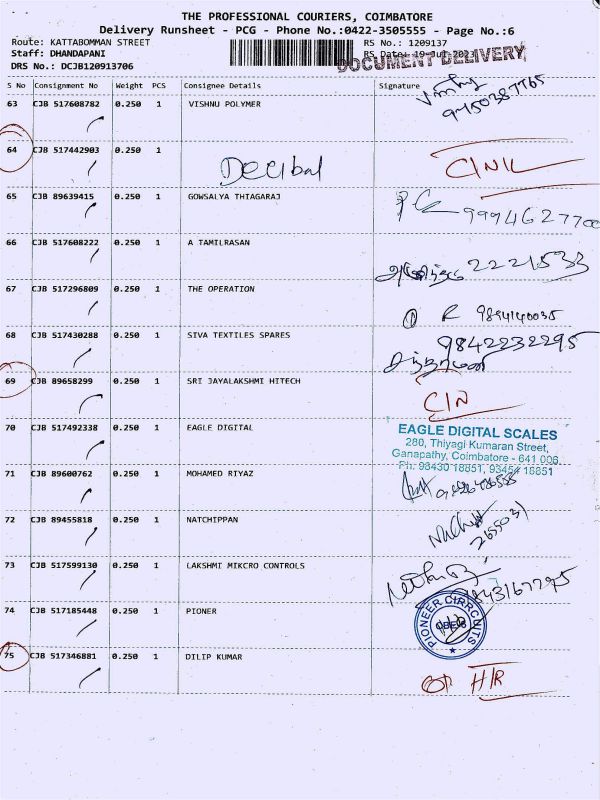 THE PROFESSIONAL COURIERS, COIMBATORE
Delivery Runsheet - PCG - Phone No.:0422-3505555 - Page No.:6
Route: KATTABOMMAN STREET RS No.: 1209137
Staff: DHANDAPANI RS Date: 19-Jul-2023
DOCUMENT DELIVERY
DRS No.: DCJB120913706
S No Consignment No Weight PCS Consignee Details Signature
63 CJB 517608782 0.250 1 VISHNU POLYMER
64 CJB 517442903 0.250 1
Decibal
65 CJB 89639415 0.250 1 GOWSALYA THIAGARAJ
9994627700
66 CJB 517608222 0.250 1 A TAMILRASAN
2221533
67 CJB 517296809 0.250 1 THE OPERATION
R 9894140035
68 CJB 517430288 0.250 1 SIVA TEXTILES SPARES
9842232295
69 CJB 89658299 0.250 1 SRI JAYALAKSHMI HITECH
C/N
70 CJB 517492338 0.250 1 EAGLE DIGITAL
EAGLE DIGITAL SCALES
280, Thiyagi Kumaran Street,
Ganapathy, Coimbatore - 641 006.
Ph: 98430 18851, 93454 18851
71 CJB 89600762 0.250 1 MOHAMED RIYAZ
72 CJB 89455818 0.250 1 NATCHIPPAN
73 CJB 517599130 0.250 1 LAKSHMI MIKCRO CONTROLS
9843167295
74 CJB 517185448 0.250 1 PIONER
PIONEER CIRRCUITS
75 CJB 517346881 0.250 1 DILIP KUMAR
H/R